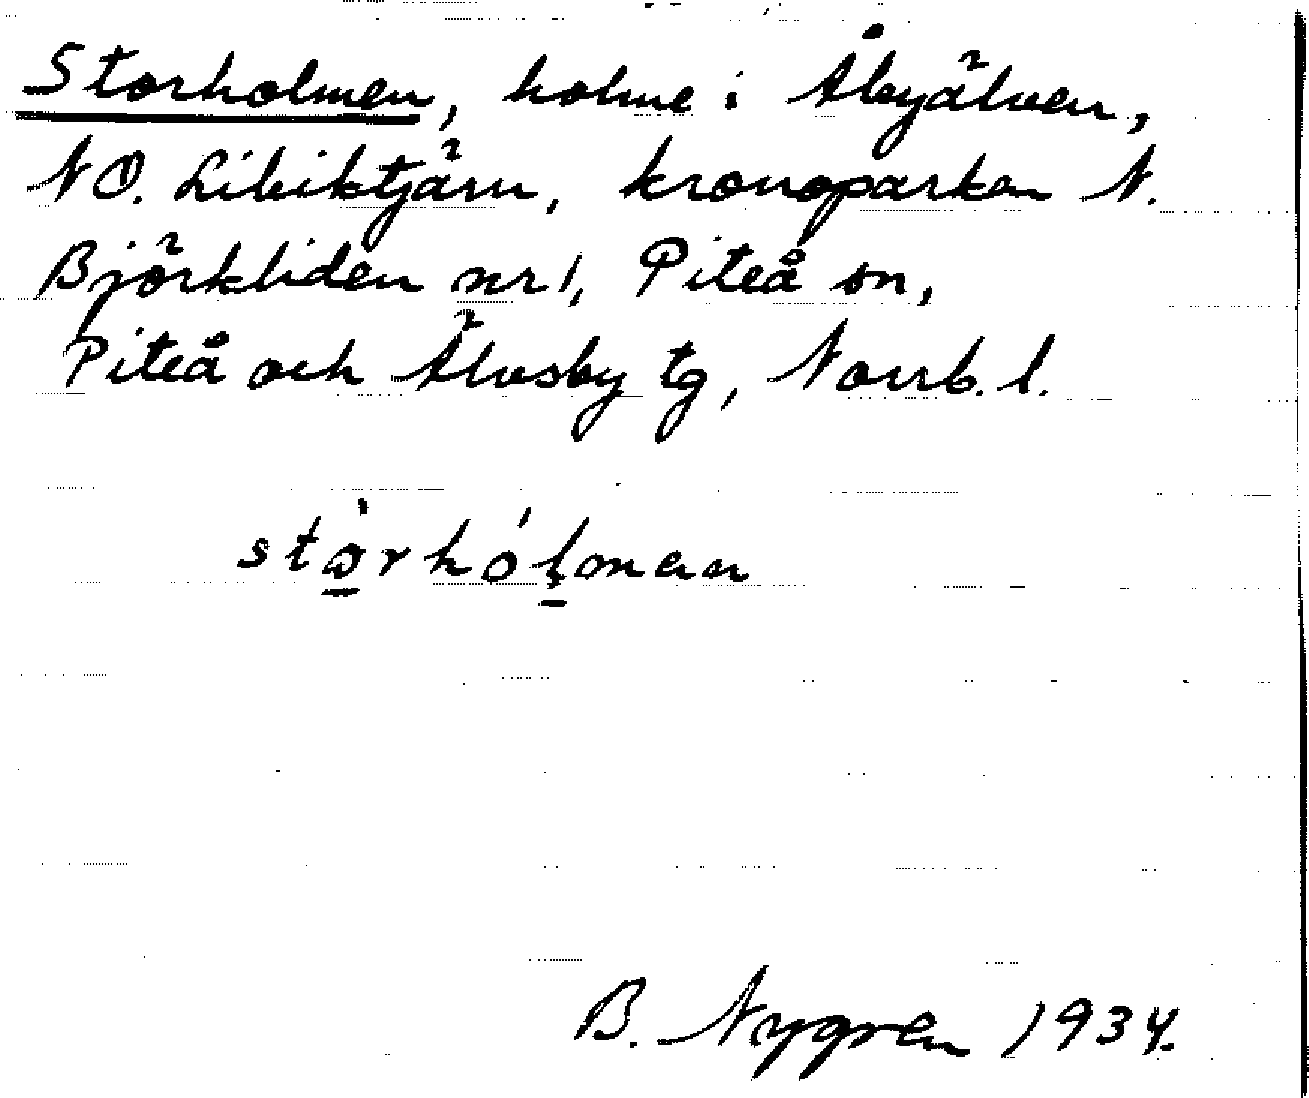 Storholmen, holme i Åbyälven,
NO. Libiktjärn, kronoparken N.
Björkliden nr 1, Piteå sn,
Piteå och Älvsby tg, Norrb. l.
stò̱rhóḻmen
B. Nygren 1934.